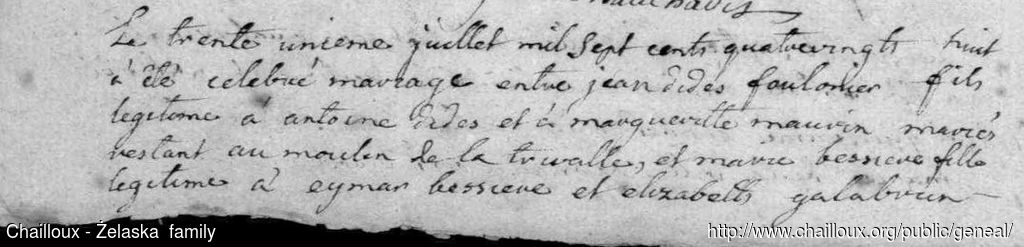 Le trente unieme juillet mil sept cents quatrevingts huit
à été celebré mariage entre jean dides foulonier fils
legitime à antoine dides et à margueritte maurin mariés
restant au moulin de la trivalle, et marie bessiere fille
legitime à eymar bessiere et elizabeth galabrun
Chailloux - Żelaska family
http://www.chailloux.org/public/geneal/